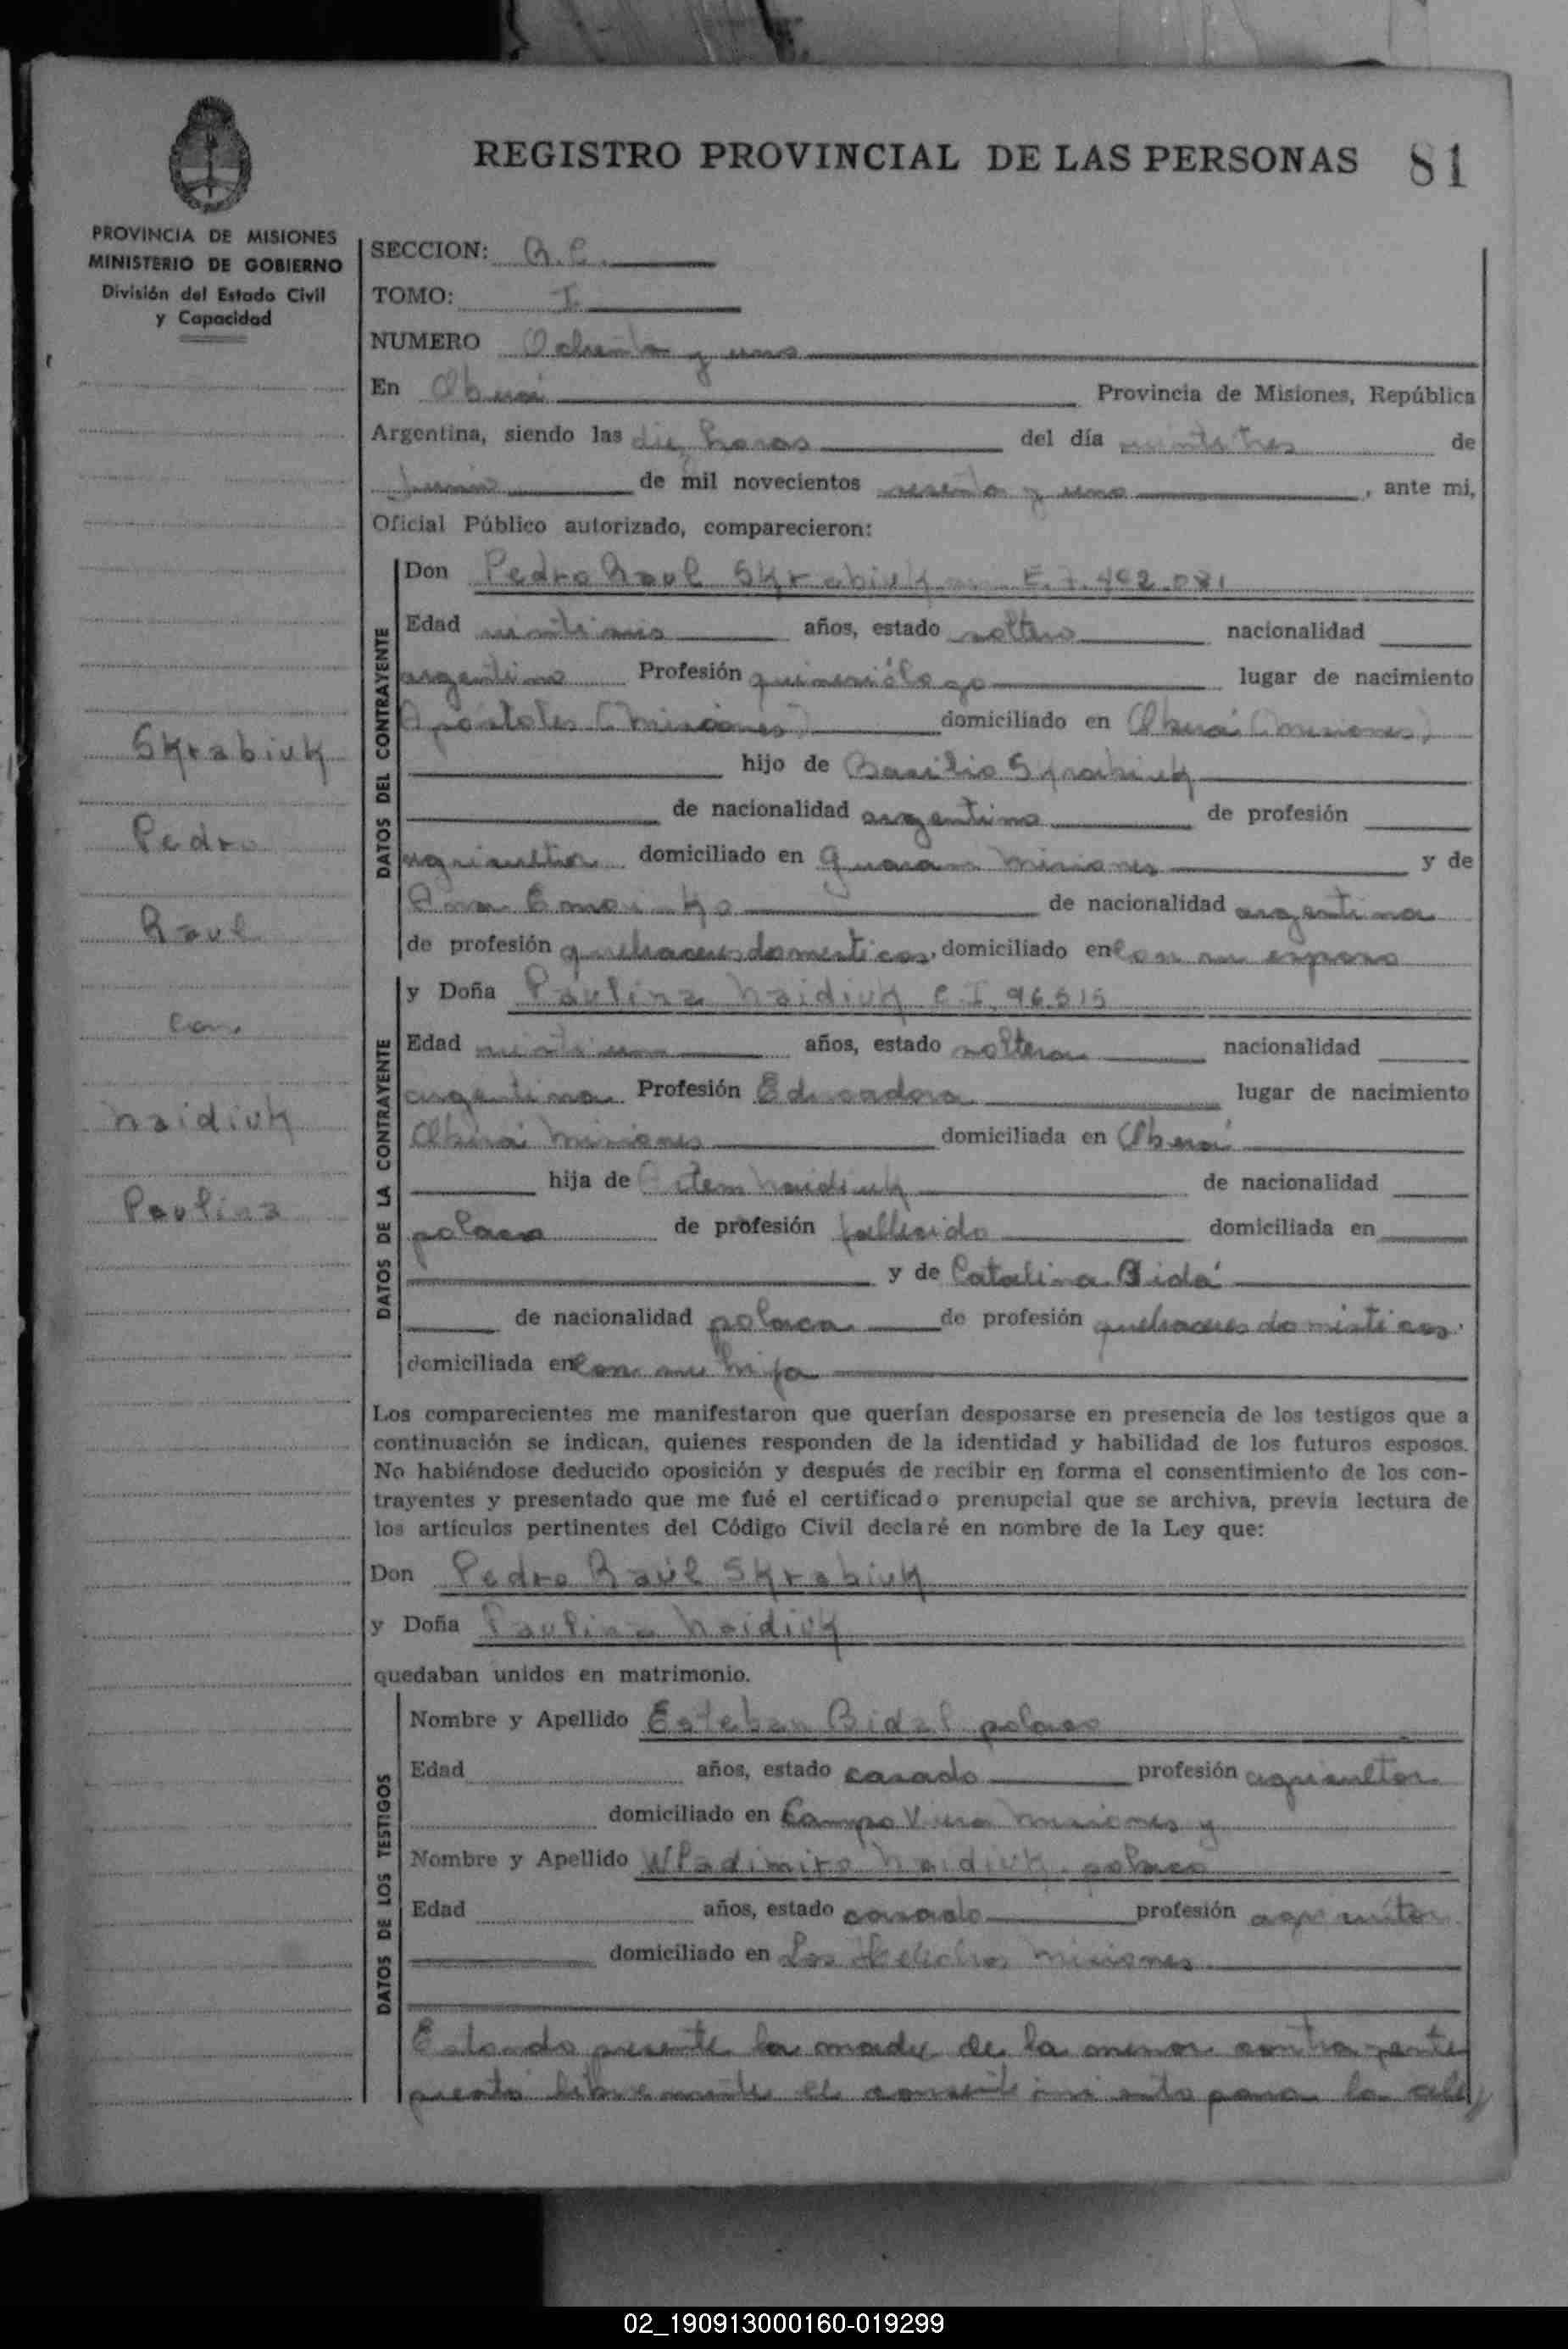 REGISTRO PROVINCIAL DE LAS PERSONAS 81
PROVINCIA DE MISIONES
MINISTERIO DE GOBIERNO
División del Estado Civil
y Capacidad
Skrabiuk
Pedro
Raul
con
Naidiuk
Paulina
SECCION: R.C.
TOMO: I.
NUMERO Ochenta y uno
En Oberá Provincia de Misiones, República
Argentina, siendo las diez horas del día veintitres de
Junio de mil novecientos sesenta y uno, ante mi,
Oficial Público autorizado, comparecieron:
DATOS DEL CONTRAYENTE
Don Pedro Raul Skrabiuk
Edad años, estado soltero nacionalidad
argentino Profesión lugar de nacimiento
Apóstoles (Misiones) domiciliado en Oberá (Misiones)
hijo de Basilio Skrabiuk
de nacionalidad argentino de profesión
agricultor domiciliado en Misiones y de
Ana de nacionalidad argentina
de profesión quehaceres domesticos, domiciliado en con su esposo
DATOS DE LA CONTRAYENTE
y Doña Paulina Naidiuk C.I. 96.515
Edad años, estado soltera nacionalidad
argentina Profesión Educadora lugar de nacimiento
Oberá Misiones domiciliada en Oberá
hija de Artem Naidiuk de nacionalidad
polaco de profesión fallecido domiciliada en
y de Catalina Bida
de nacionalidad polaca de profesión quehaceres domésticos.
domiciliada en con su hija
Los comparecientes me manifestaron que querían desposarse en presencia de los testigos que a
continuación se indican, quienes responden de la identidad y habilidad de los futuros esposos.
No habiéndose deducido oposición y después de recibir en forma el consentimiento de los con-
trayentes y presentado que me fué el certificado prenupcial que se archiva, previa lectura de
los artículos pertinentes del Código Civil declaré en nombre de la Ley que:
Don Pedro Raúl Skrabiuk
y Doña Paulina Naidiuk
quedaban unidos en matrimonio.
DATOS DE LOS TESTIGOS
Nombre y Apellido Esteban polaco
Edad años, estado casado profesión agricultor
domiciliado en Campo Viera Misiones y
Nombre y Apellido Wladimiro Naidiuk polaco
Edad años, estado casado profesión agricultor
domiciliado en Los Helechos Misiones
Estando presente la madre de la menor contrayente
prestó libremente el consentimiento para
02_190913000160-019299